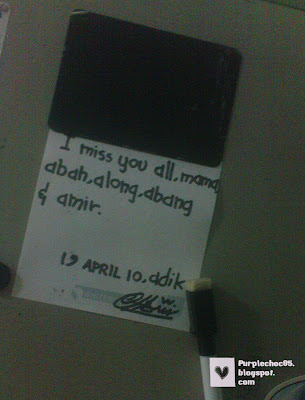 I miss you all, mama,
abah, along, abang
& amir.
19 APRIL 10, adik
Purplechoc85.
blogspot.
com